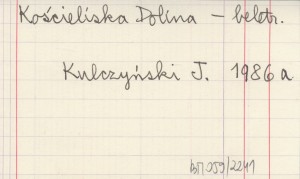 Kościeliska Dolina – beletr.
Kulczyński J. 1986 a